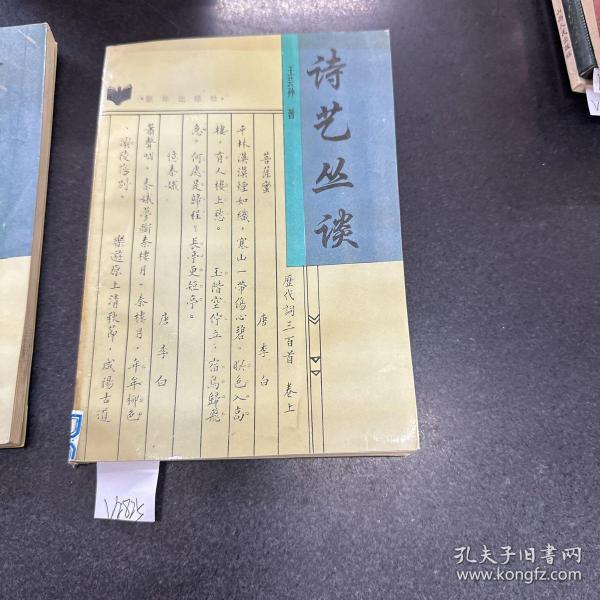 诗艺丛谈
王芸孙 著
新华出版社
歷代詞三百首 卷上
菩薩蠻 唐 李白
平林漠漠煙如織，寒山一帶傷心碧。暝色入高
樓，有人樓上愁。 玉階空佇立，宿鳥歸飛
急。何處是歸程？長亭更短亭。
憶秦娥 唐 李白
簫聲咽，秦娥夢斷秦樓月。秦樓月，年年柳色
，灞陵傷別。 樂遊原上清秋節，咸陽古道
V2825
孔夫子旧书网
www.kongfz.com